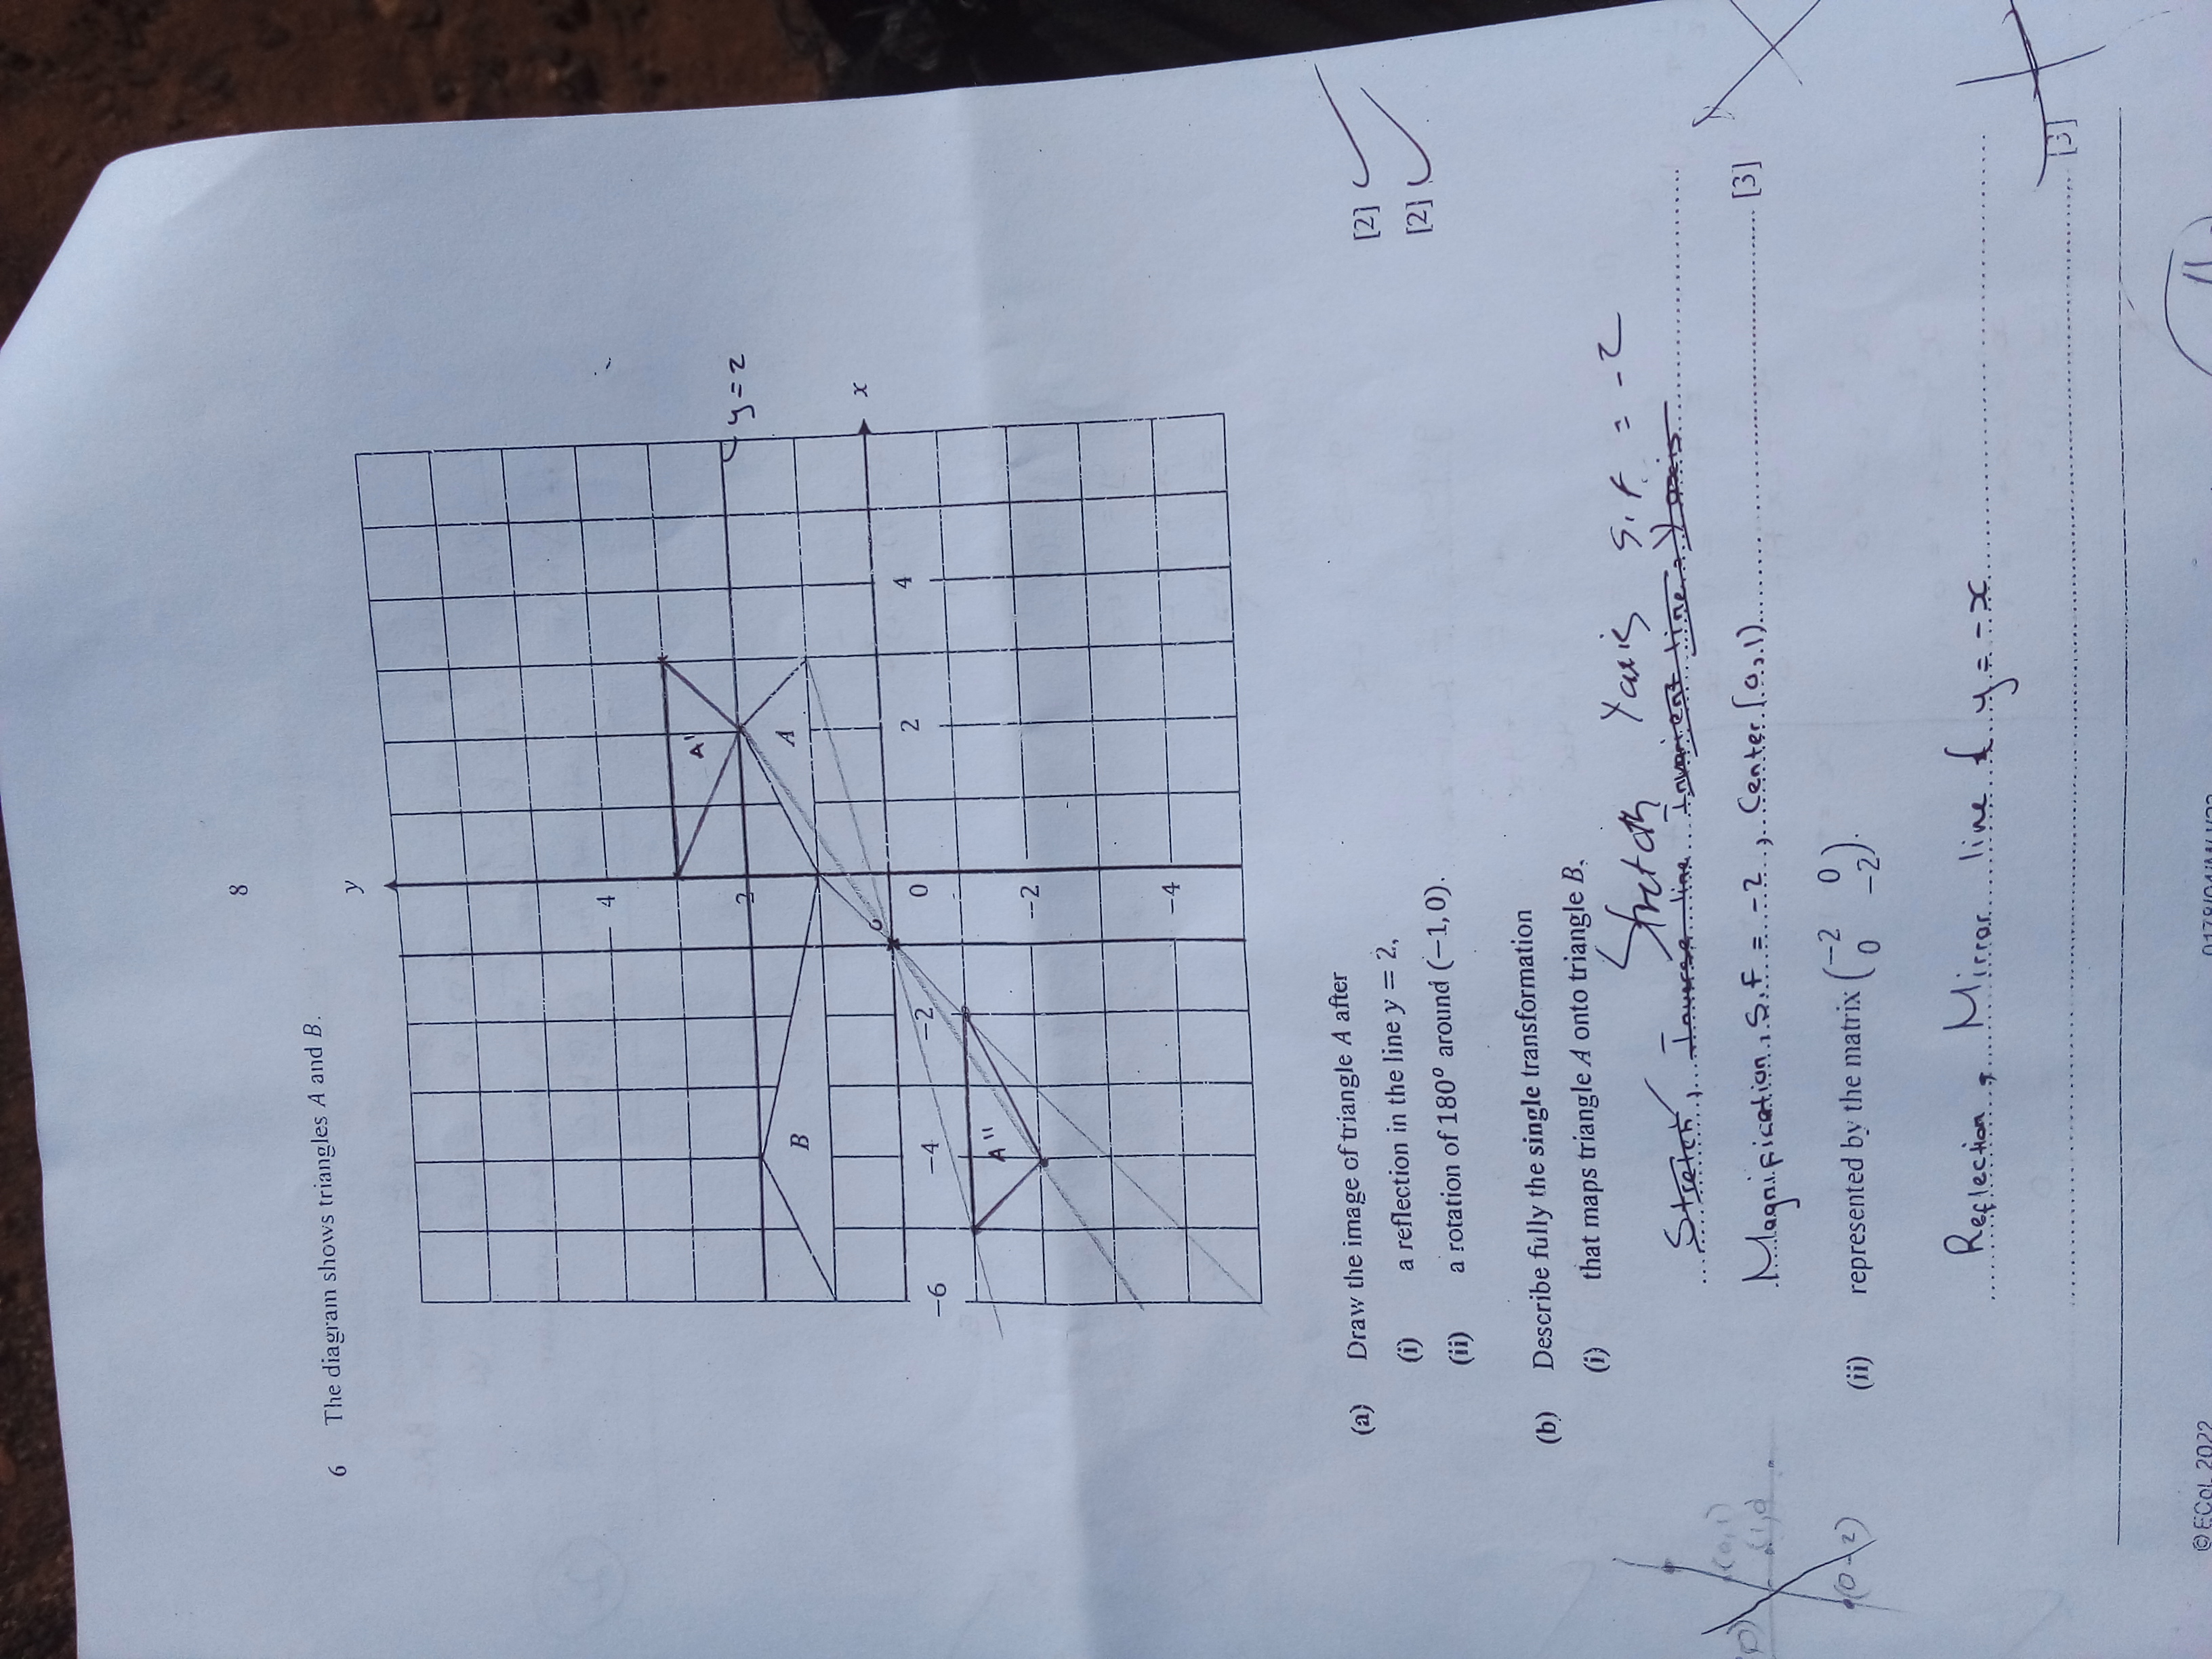 8
6 The diagram shows triangles A and B.
y
4
A'
2
y = 2
B
A
x
-6
-4
-2
0
2
4
A"
-2
-4
(a) Draw the image of triangle A after
(i) a reflection in the line y = 2, [2]
(ii) a rotation of 180° around (−1, 0). [2]
(b) Describe fully the single transformation
(i) that maps triangle A onto triangle B,
Stretch Yaxis S.f = -2
Stretch, Inverse line Invarient line = Y axis
Magnification, S.F = -2, Center (0,1) [3]
(0,1)
(0-2)
(ii) represented by the matrix (−2 0
0 −2).
Reflection, Mirror line y = -x
[3]
© ECoL 2022